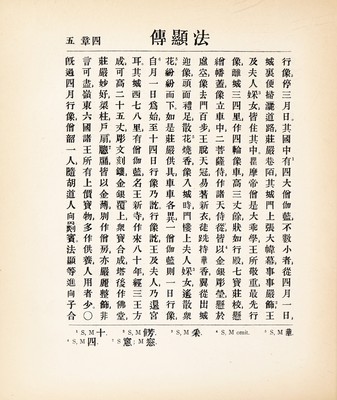 法顯傳
四章 五
行像。停三月日。其國中有四大僧伽藍。不數小者。從四月一日。
城裏便掃灑道路。莊嚴巷陌。其城門上張大幃幕。事事嚴飾。王
及夫人婇女。皆住其中。瞿摩帝僧是大乘學。王所敬重。最先行
像。離城三四里。作四輪像車。高三丈餘。狀如行殿。七寶莊校。懸
繒幡蓋。像立車中。二菩薩侍。作諸天侍從。皆以金銀彫瑩。懸於
虛空。像去門百步。王脫天冠。易著新衣。徒跣持華香。翼從出城
迎像。頭面禮足。散花燒香。像入城時。門樓上夫人婇女。遙散衆
花。紛紛而下。如是莊嚴供具。車車各異。一僧伽藍。則一日行像。
自月一日爲始。至十四日行像乃訖。行像訖。王及夫人。乃還宮
耳。其城西七八里。有僧伽藍。名王新寺。作來八十年。經三王方
成。可高二十五丈。彫文刻鏤。金銀覆上。衆寶合成。塔後作佛堂。
莊嚴妙好。梁柱戶扇窻牖。皆以金薄。別作僧房。亦嚴麗整飾。非
言可盡。嶺東六國諸王。所有上價寶物。多作供養。人用者少。〇
旣過四月行像。僧韶一人。隨胡道人向罽賓。法顯等進向子合
¹ S, M 華. ² S, M omit. ³ S, M 采. ⁴ S, M 傍. ⁵ S, M 十.
⁶ S, M 四. ⁷ S 窻; M 窓.